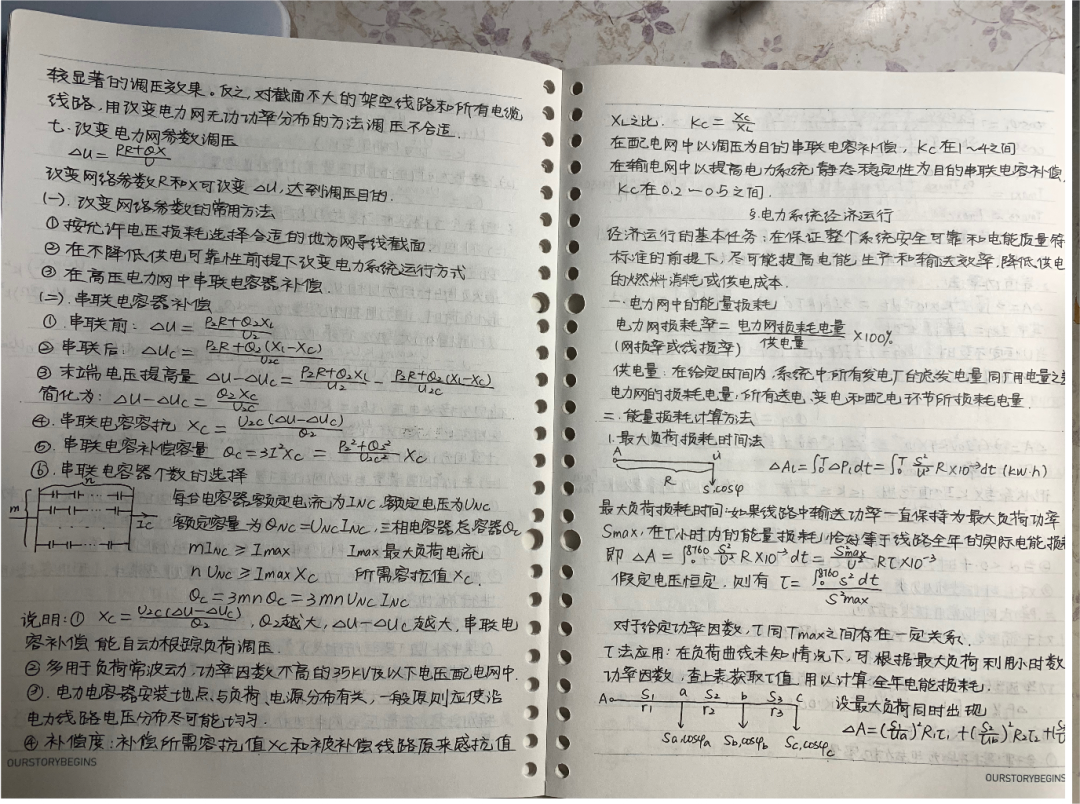 较显著的调压效果。反之,对截面不大的架空线路和所有电缆
线路,用改变电力网无功功率分布的方法调压不合适.
七.改变电力网参数调压
ΔU=(PR+QX)/U
改变网络参数R和X可改变ΔU,达到调压目的.
(一).改变网络参数的常用方法
①按允许电压损耗选择合适的地方网导线截面.
②在不降低供电可靠性前提下改变电力系统运行方式
③在高压电力网中串联电容器补偿.
(二).串联电容器补偿
①.串联前:ΔU=(P₂R+Q₂X_L)/U₂
②串联后:ΔUc=(P₂R+Q₂(X_L-Xc))/U₂c
③末端电压提高量 ΔU-ΔUc=(P₂R+Q₂X_L)/U₂-(P₂R+Q₂(X_L-Xc))/U₂c
简化为:ΔU-ΔUc=Q₂Xc/U₂c
④.串联电容容抗 Xc=U₂c(ΔU-ΔUc)/Q₂
⑤.串联电容补偿容量 Qc=3I²Xc=(P₂²+Q₂²)/U₂c²·Xc
⑥.串联电容器个数的选择
n
m
Ic
每台电容器额定电流为INC.额定电压为UNC
额定容量为QNC=UNC INC,三相电容器总容器Qc
mINC≥Imax Imax最大负荷电流
nUNC≥ImaxXc 所需容抗值Xc.
Qc=3mnQc=3mnUNC INC
说明:① Xc=U₂c(ΔU-ΔUc)/Q₂,Q₂越大,ΔU-ΔUc越大,串联电
容补偿能自动根踪负荷调压.
②多用于负荷常波动,功率因数不高的35kV及以下电压配电网中.
③.电力电容器安装地点与负荷、电源分布有关,一般原则应使沿
电力线路电压分布尽可能均匀.
④补偿度:补偿所需容抗值Xc和被补偿线路原来感抗值
OURSTORYBEGINS
X_L之比. Kc=Xc/X_L
在配电网中以调压为目的串联电容补偿,Kc在1~4之间
在输电网中以提高电力系统静态稳定性为目的串联电容补偿.
Kc在0.2—0.5之间.
§.电力系统经济运行
经济运行的基本任务:在保证整个系统安全可靠和电能质量符
标准的前提下,尽可能提高电能生产和输送效率,降低供电
的燃料消耗或供电成本.
一.电力网中的能量损耗
电力网损耗率=电力网损耗电量/供电量×100%
(网损率或线损率)
供电量:在给定时间内,系统中所有发电厂的总发电量同厂用电量之
电力网的损耗电量,所有送电、变电和配电环节所损耗电量.
二.能量损耗计算方法
1.最大负荷损耗时间法
A
R
S,cosφ
ΔA_L=∫₀ᵀΔP_Ldt=∫₀ᵀS²/U²R×10⁻³dt(kW·h)
最大负荷损耗时间:如果线路中输送功率一直保持为最大负荷功率
Smax,在τ小时内的能量损耗恰好等于线路全年的实际电能损
即 ΔA=∫₀⁸⁷⁶⁰S²/U²R×10⁻³dt=S²max/U²Rτ×10⁻³
假定电压恒定.则有 τ=∫₀⁸⁷⁶⁰S²dt/S²max
对于给定功率因数,τ同Tmax之间存在一定关系.
τ法应用:在负荷曲线未知情况下,可根据最大负荷利用小时数
功率因数,查上表获取τ值,用以计算全年电能损耗.
A S₁ a S₂ b S₃ c
r₁ r₂ r₃
Sa,cosφa Sb,cosφb Sc,cosφc
设最大负荷同时出现
ΔA=(S₁/Ua)²R₁τ₁+(S₂/Ub)²R₂τ₂+
OURSTORYBEGINS